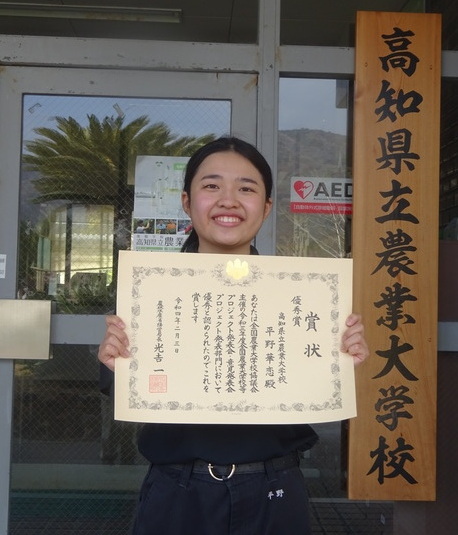 高知県立農業大学校
AED
高知県立農業
賞状
優秀賞
高知県立農業大学校
平野 華恋 殿
あなたは全国農業大学校協議会
主催の令和三年度全国農業大学校等
プロジェクト発表会・意見発表会
プロジェクト発表部門において
優秀と認められたのでこれを
賞します
令和四年二月三日
光吉 一
平野